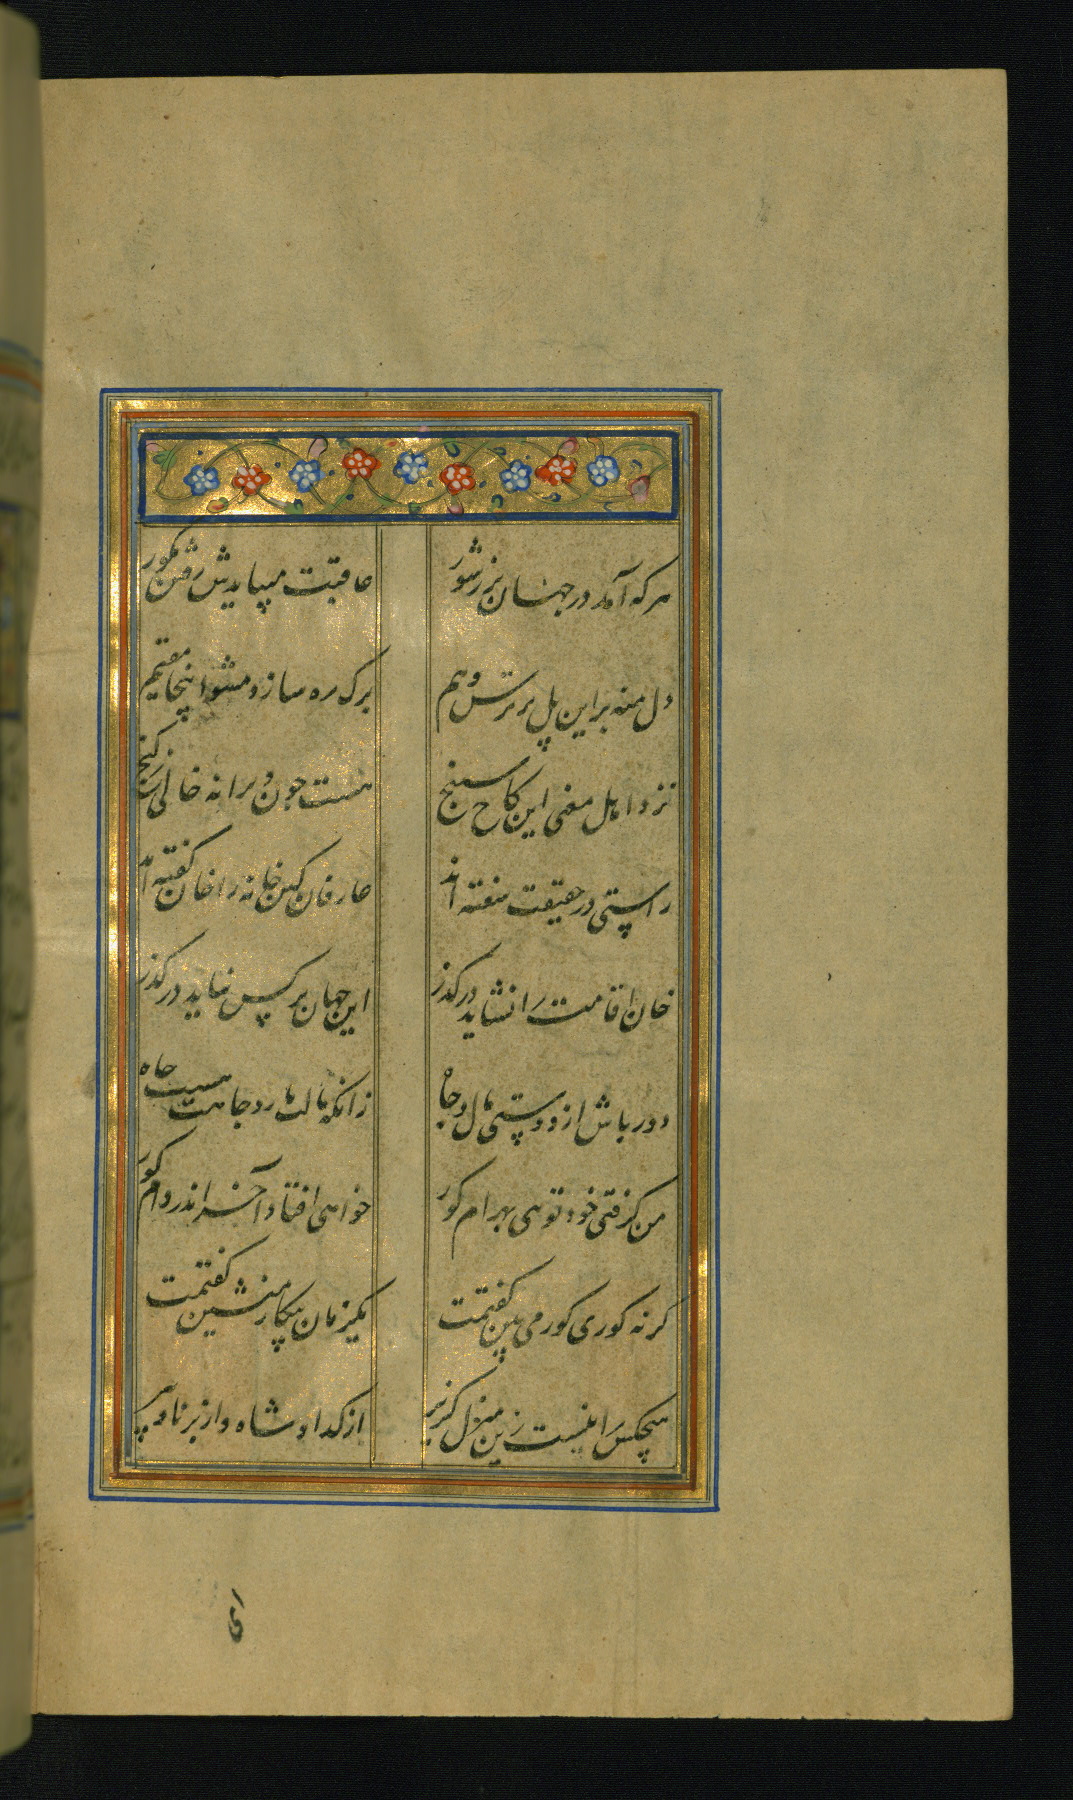 هر که آمد در جهان پر ز شور
عاقبت میبایدش رفتن بکور
دل منه بر این پل پر ترس و بیم
برک ره ساز و مشو اینجا مقیم
نزد اهل معنی این کاخ سپنج
هست چون ویرانه خالی ز کنج
راستی در حقیقت سفته اند
عارفان کین خانه را خان کفته اند
خان اقامت را نشاید در کذر
این جهان بر کس نپاید در کذر
دور باش از دوستی مال و جاه
زانکه مالت مار و جاهت هست چاه
من کرفتم خود توهی بهرام کور
خواهی افتاد آخر اندر دام کور
کر نه کوری کور می بین کفتمت
یکزمان بیکار منشین کفتمت
هیچکس را نیست زین منزل کزیر
از کدا و شاه و از برنا و پیر